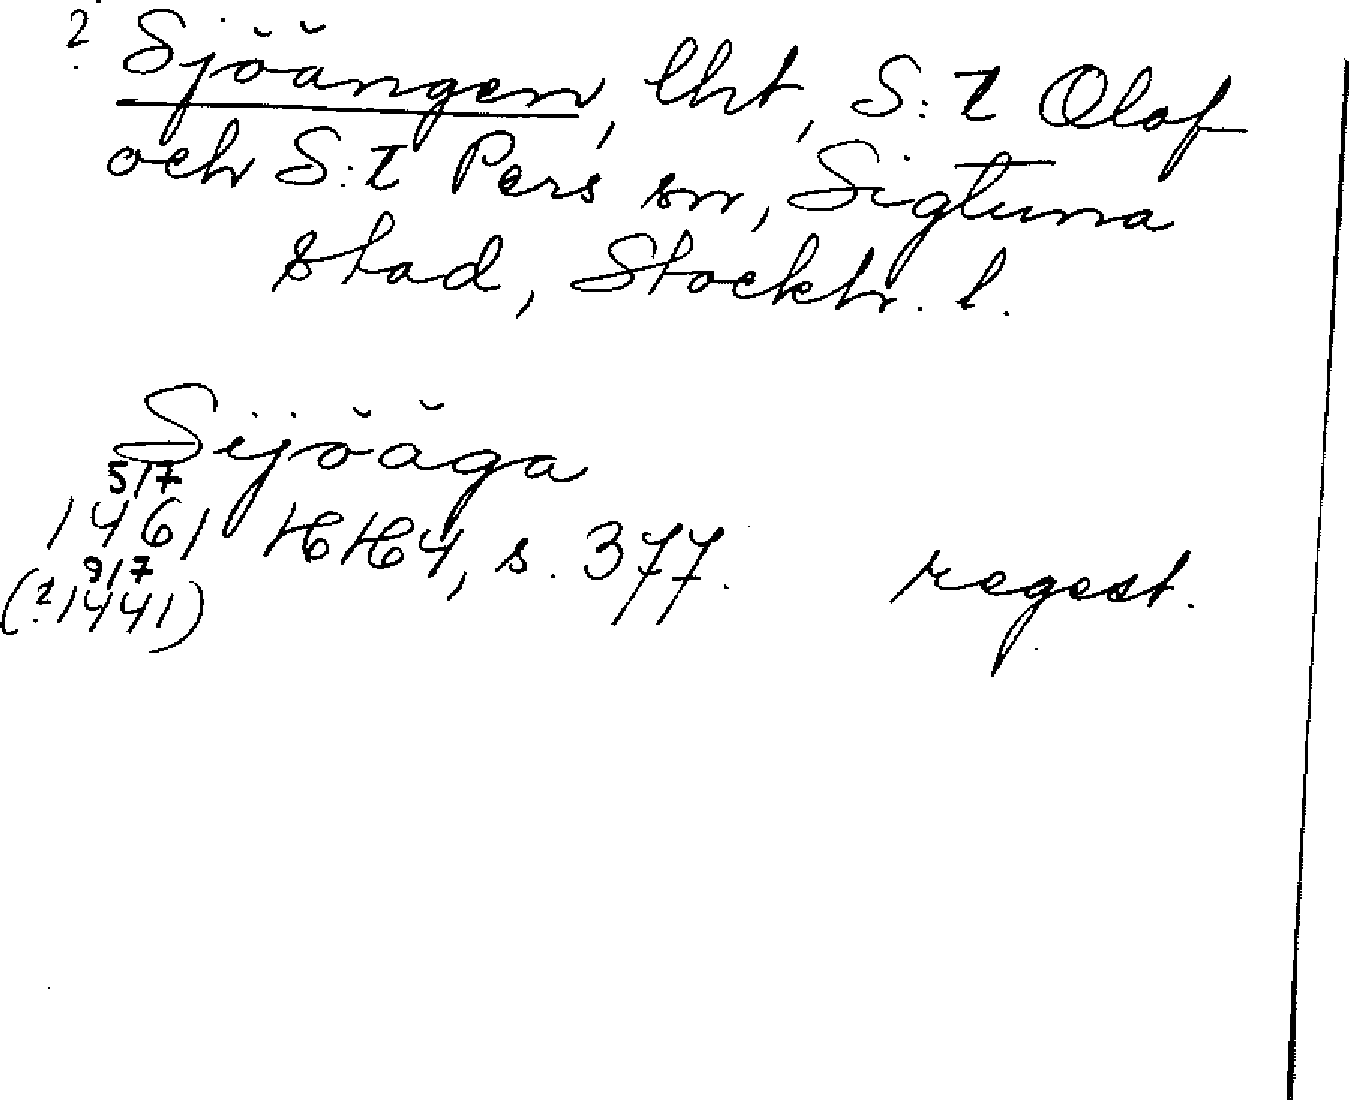 ? Sjöängen, lht, S:t Olof
och S:t Pers sn, Sigtuna
stad, Stockh. l.
Sijöäga
5/7
1461 HH 4, s. 377. regest.
9/7
(?1441)